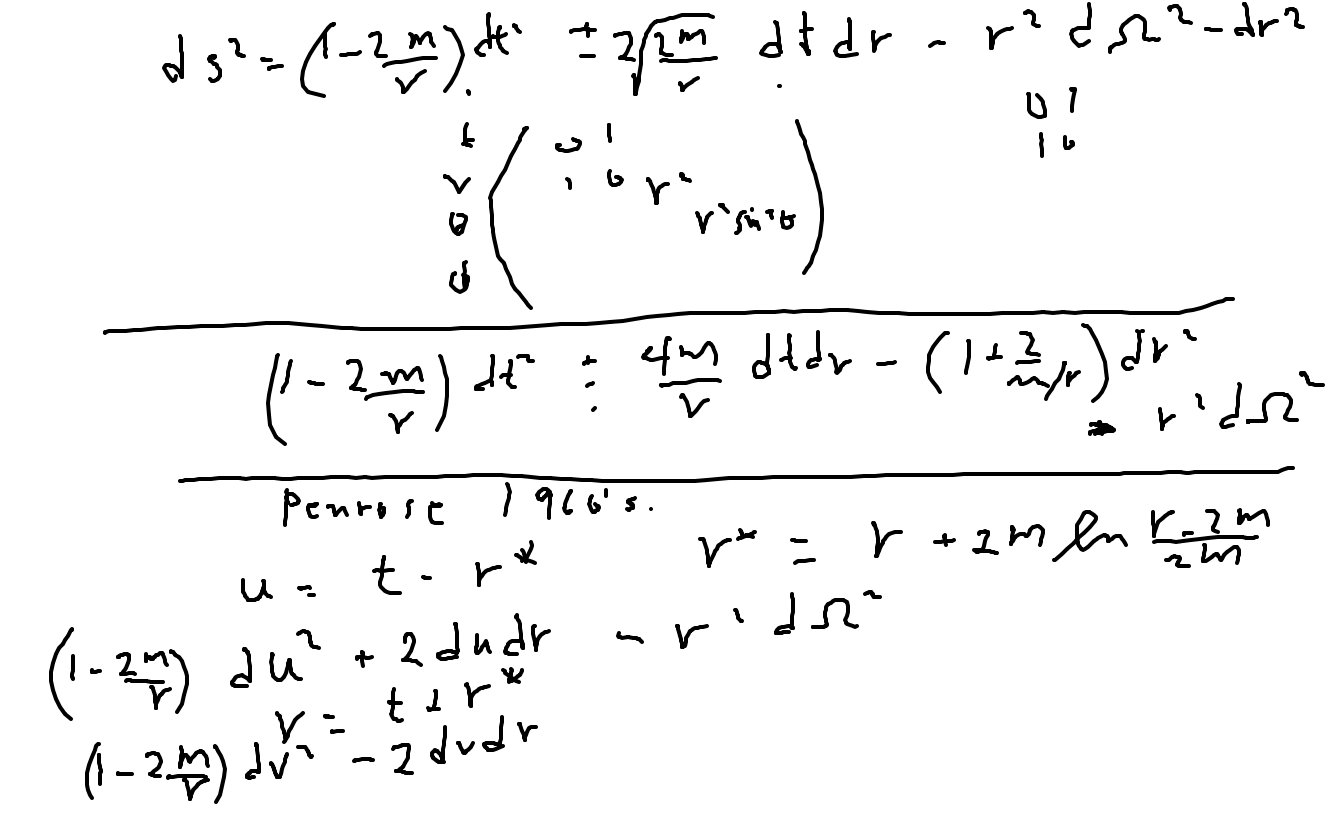 ds² = (1 - 2 m/r) dt² ± 2√(2m/r) dt dr - r² dΩ² - dr²
0 1
1 0
t 0 1
r 1 0 r²
θ r² sin² θ
ϕ
(1 - 2 m/r) dt² ± 4m/r dt dr - (1 + 2 m/r) dr²
- r² dΩ²
Penrose 1960's.
u = t - r* r* = r + 2m ln (r - 2m)/2m
(1 - 2m/r) du² + 2 du dr - r² dΩ²
v = t + r*
(1 - 2m/r) dv² - 2 dv dr